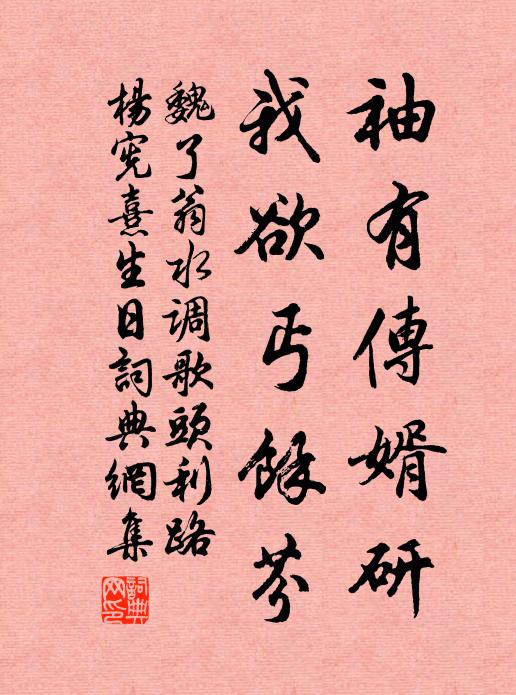 袖有傳婿研
我欲丐餘芬
魏了翁水调歌頭利路
楊宪熹生日詞典網集
詞典网印